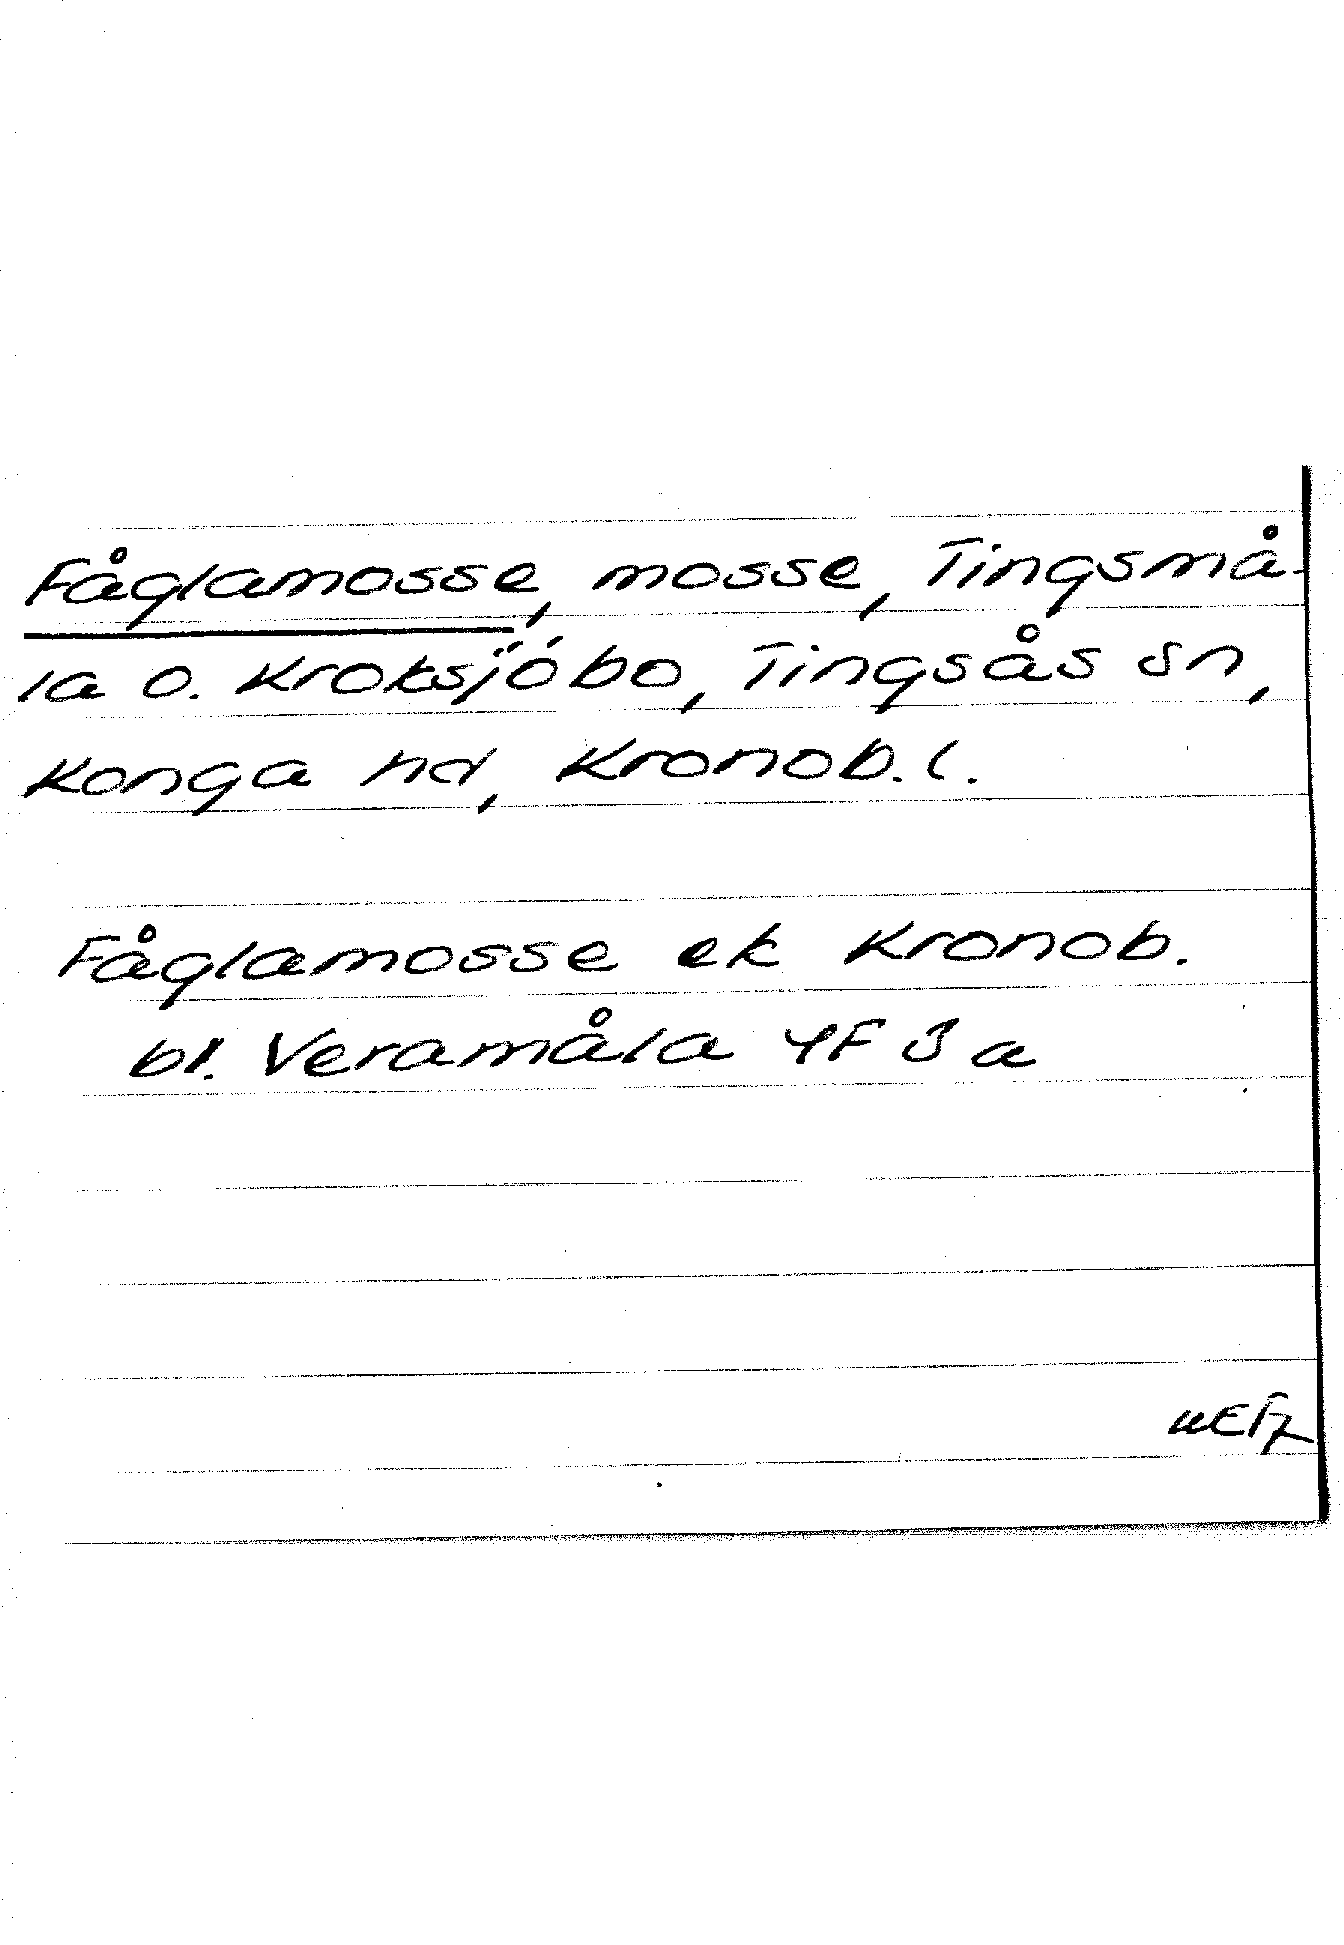 Fåglamosse, mosse, Tingsmå-
la o. Kroksjöbo, Tingsås sn,
Konga hd, Kronob. l.
Fåglamosse ek Kronob.
bl. Veramåla 4F 3 a